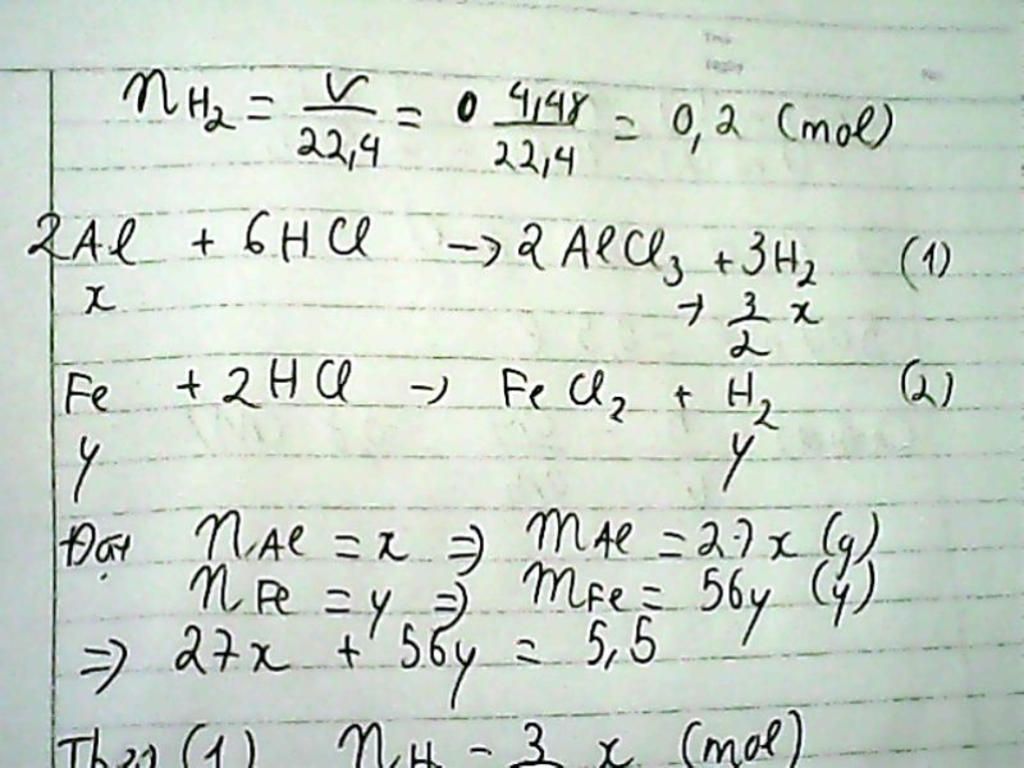 n H₂ = V/22,4 = 0 4,48/22,4 = 0,2 (mol)
2Al + 6HCl → 2AlCl₃ + 3H₂ (1)
x → 3/2 x
Fe + 2HCl → FeCl₂ + H₂ (2)
y y
Đặt n Al = x ⇒ m Al = 27x (g)
n Fe = y ⇒ m Fe = 56y (g)
⇒ 27x + 56y = 5,5
Theo (1) n H = 3 x (mol)